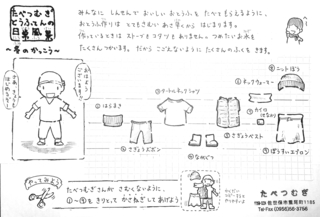 たべつむぎ
とうふてんの
日常風景
〜冬のかっこう〜
みんなに しんせんで おいしい おとうふを たべてもらえるように、
おとうふ作りは とてもさむい あさ早くから はじまります。
作っているときは ストーブも コタツも ありません。つめたいお水も
たくさんつかいます。だから こごえないように たくさんの ふくを きます。
おはよう
ございます!!
①はらまき
②タートルネックシャツ
③ぎょうざズボン
④ながぐつ
⑤さぎょうベスト
⑧ネックウォーマー
⑨ニットぼう
やってみよう
たべつむぎさんが さむくないように、
①〜⑨を きりとって かさねぎして あげよう!
たべつむぎ
佐世保市鹿町町1165
Tel・Fax (0956)356-3756